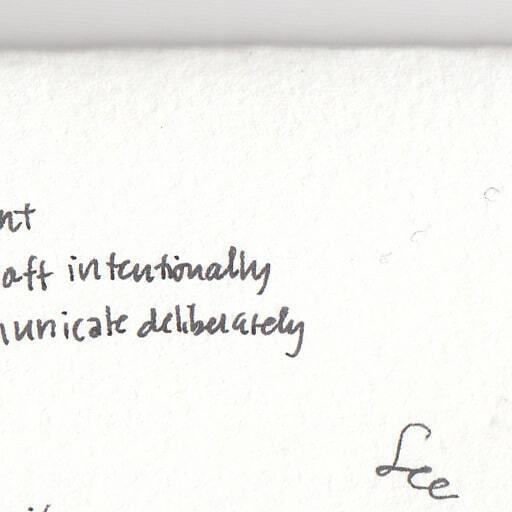 nt
aft intentionally
unicate deliberately
See